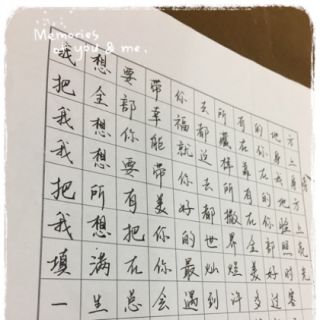 Memories
of you & me.
我想要带你去所有的地方
把全部幸福都藏在你身上
我想你能就这样靠在我身旁
我想要带你去所有的地方
把所有美好都撒在你脸
我想把你的世界全部照亮
填满在你最灿烂美好时光
一生总会遇到许多过客